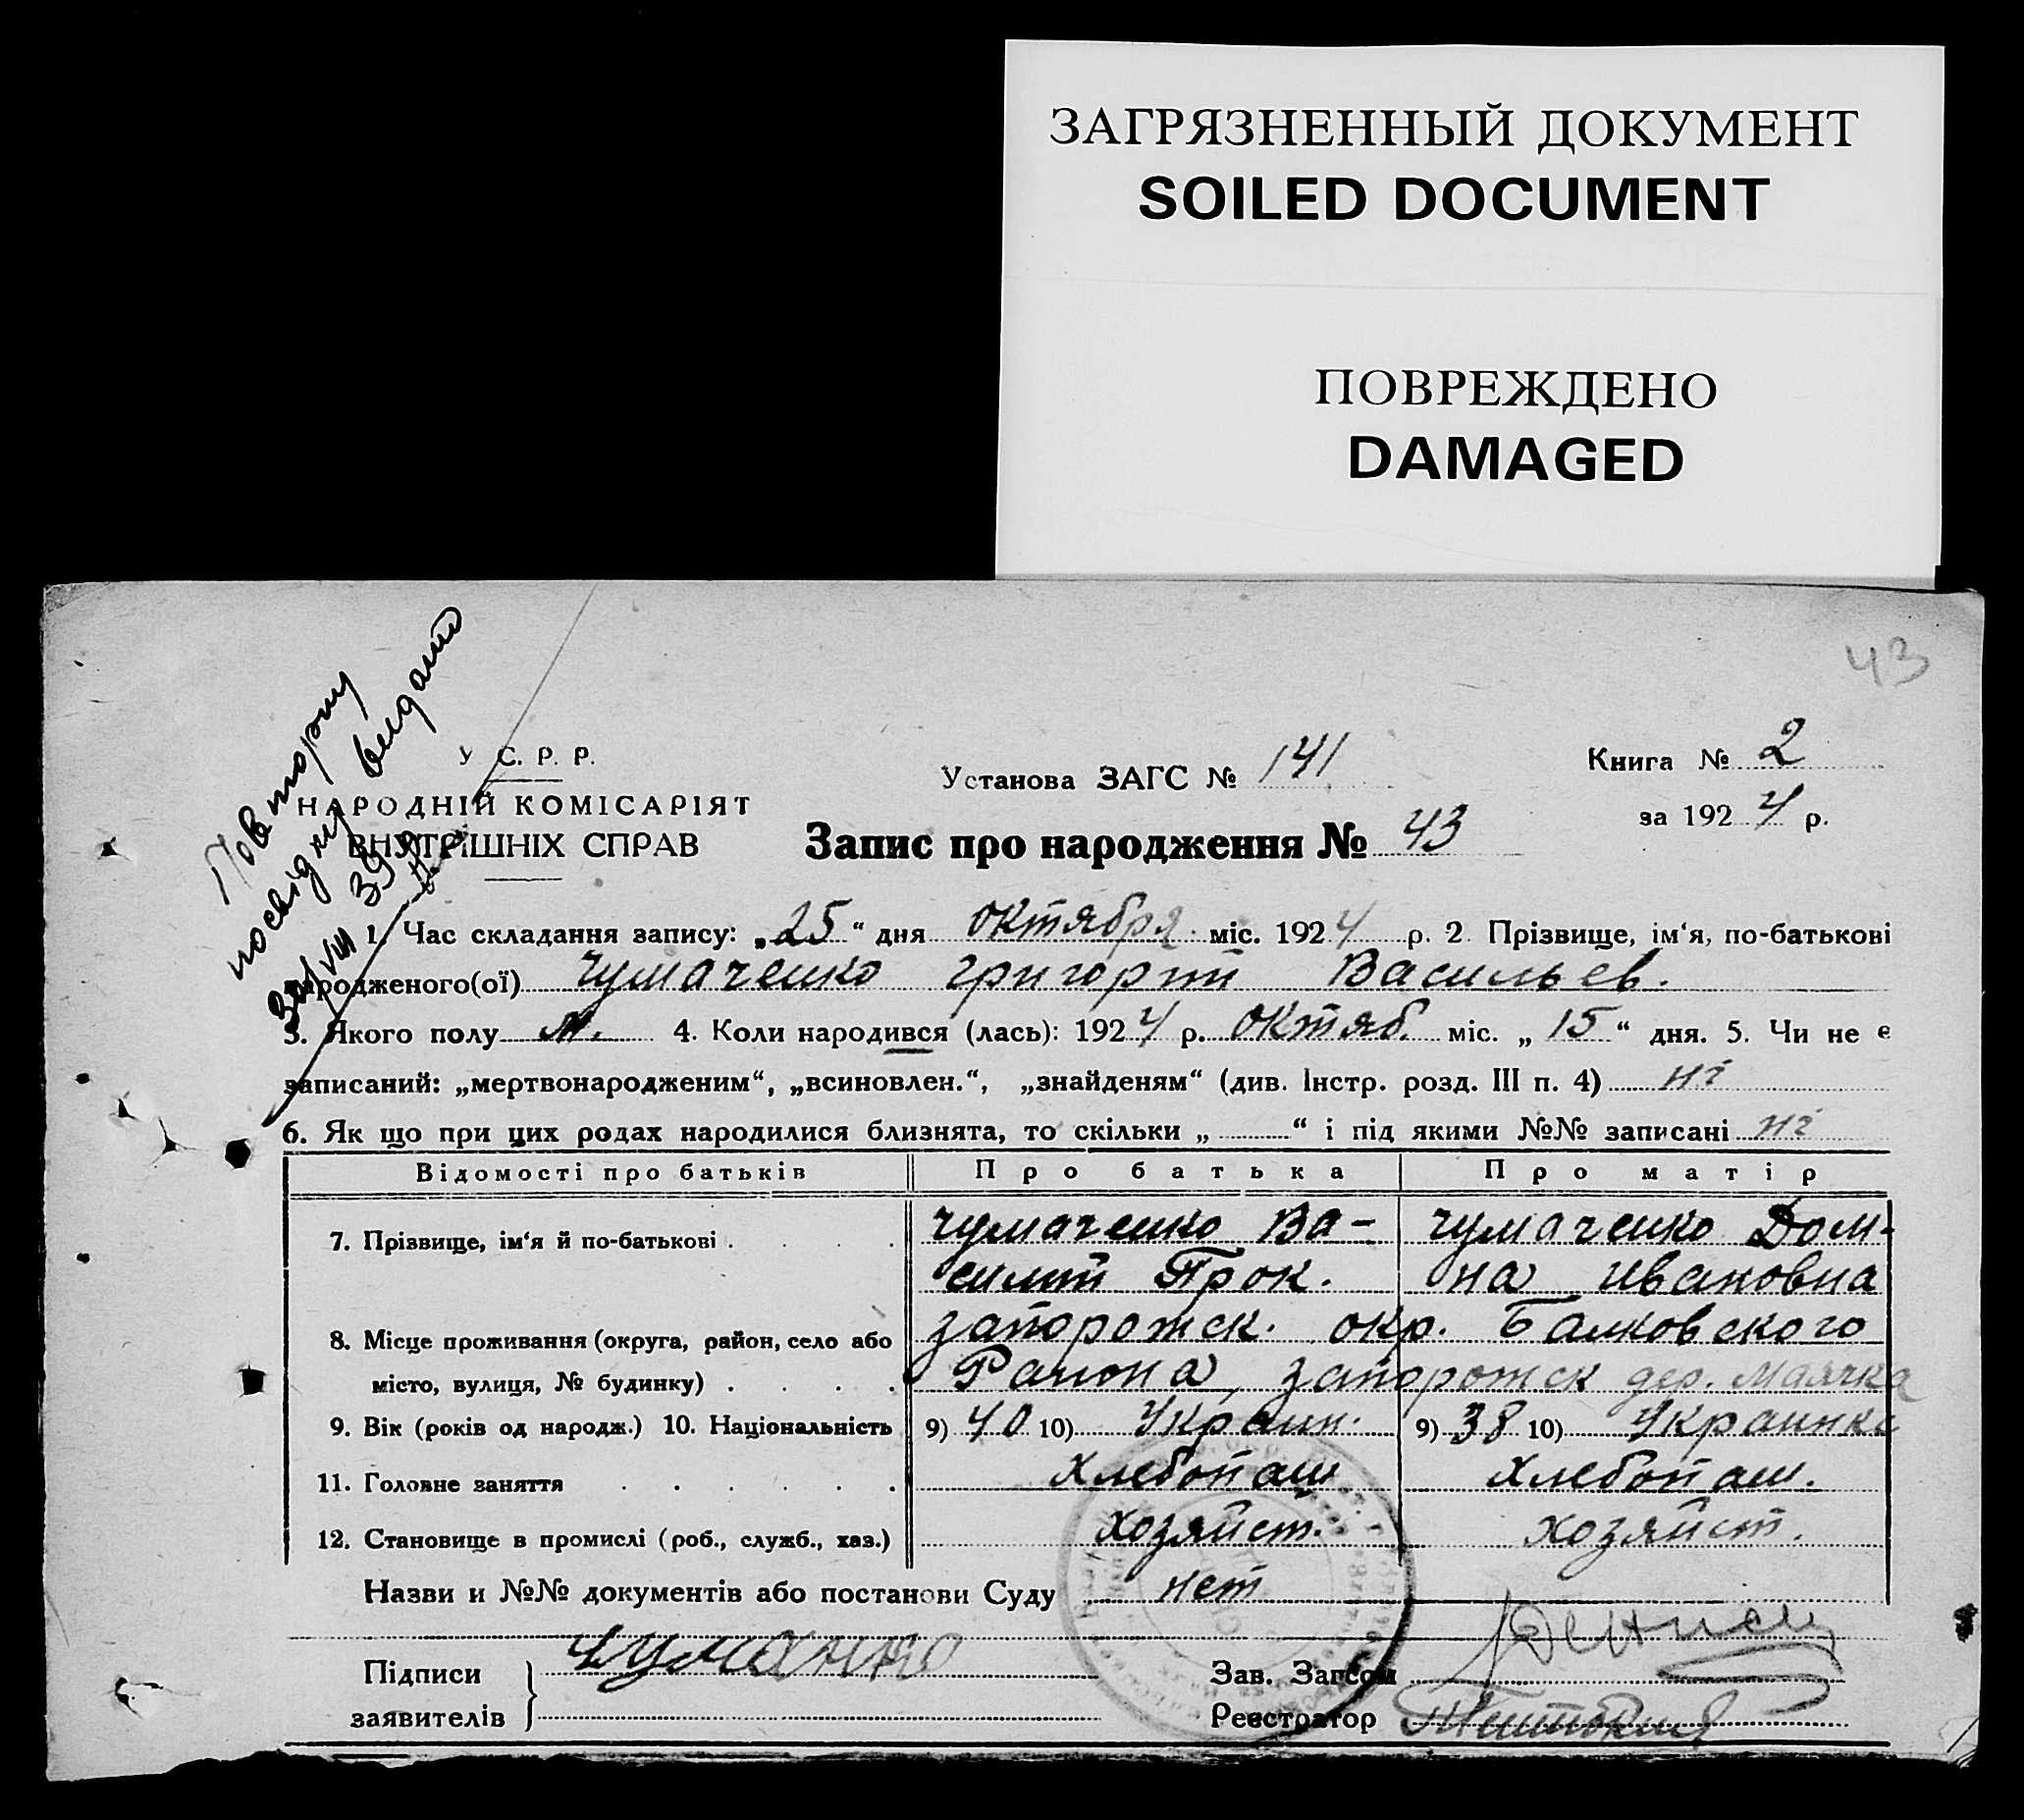 ЗАГРЯЗНЕННЫЙ ДОКУМЕНТ
SOILED DOCUMENT
ПОВРЕЖДЕНО
DAMAGED
43
Повторну
посвідку видано
У С. Р. Р.
НАРОДНІЙ КОМІСАРІЯТ
ВНУТРІШНІХ СПРАВ
Установа ЗАГС № 141
Книга № 2
за 1924 р.
Запис про народження № 43
1. Час складання запису: „25“ дня октября міс. 1924 р. 2. Прізвище, ім‘я, по-батькові
народженого(ої) Чумаченко Григорий Васильев.
3. Якого полу м. 4. Коли народився (лась): 1924 р. октяб. міс. „15“ дня. 5. Чи не є
записаний: „мертвонародженим“, „всиновлен.“, „знайденям“ (див. Інстр. розд. III п. 4) ні
6. Як що при цих родах народилися близнята, то скільки „ “ і під якими №№ записані ні
Відомості про батьків Про батька Про матір
7. Прізвище, ім‘я й по-батькові . . . . Чумаченко Ва- Чумаченко Дом-
силий Прок. на Ивановна
8. Місце проживання (округа, район, село або запорожск. окр. Балковского
місто, вулиця, № будинку) . . . . Района, запорожск дер. Маячка
9. Вік (років од народж.) 10. Національність 9) 40 10) Украин. 9) 38 10) Украинка
11. Головне заняття . . . . . . Хлебопаш Хлебопаш.
12. Становище в промислі (роб., служб., хаз.) хозяйст. хозяйст.
Назви и №№ документів або постанови Суду нет
Підписи
заявителів
Зав. Загсом
Реєстратор